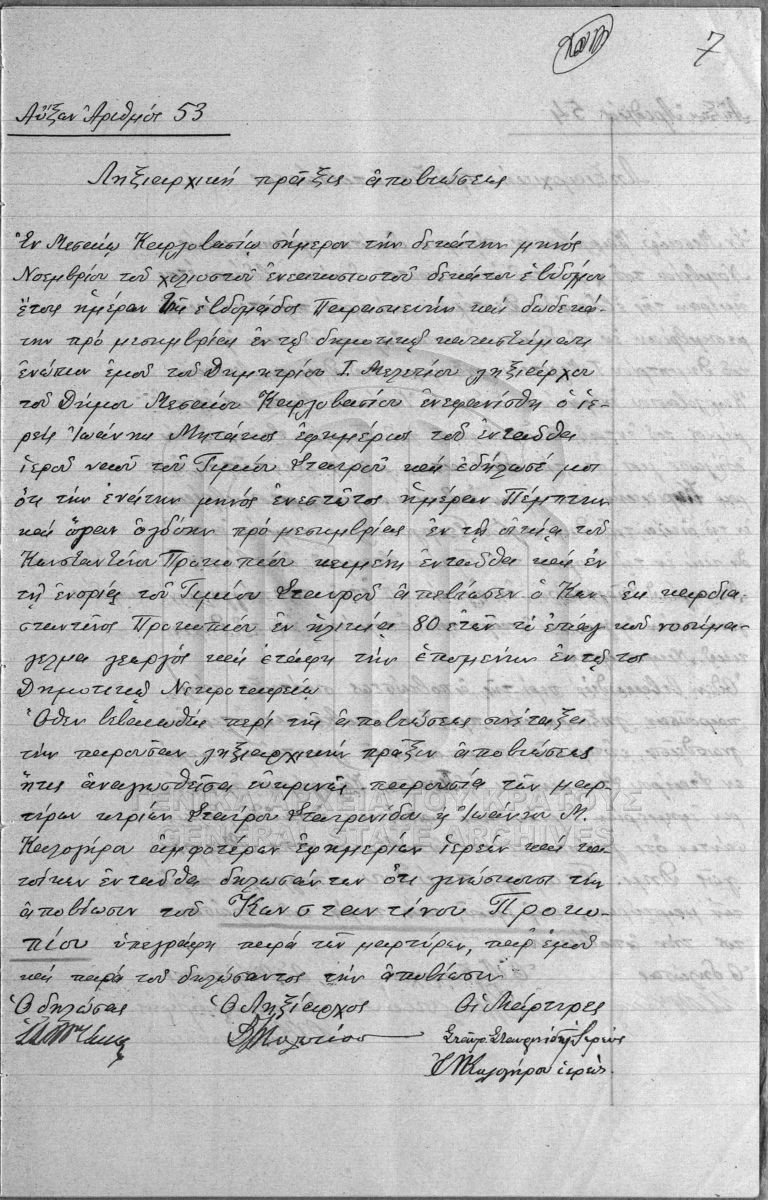 7
Αὔξων Ἀριθμός 53
Ληξιαρχική πρᾶξις ἀποβιώσεως
Ἐν Μεσαίῳ Καρλοβασίῳ σήμερον τήν δεκάτην μηνός
Νοεμβρίου τοῦ χιλιοστοῦ ἐνεακοσιοστοῦ δεκάτου ἑβδόμου
ἔτους ἡμέραν τῆς ἑβδομάδος Παρασκευήν καί δωδεκά-
την πρό μεσημβρίας ἐν τῷ δημοτικῷ καταστήματι
ἐνώπιον ἐμοῦ τοῦ Δημητρίου Ι. Μελετίου ληξιάρχου
τοῦ Δήμου Μεσαίου Καρλοβασίου ἐνεφανίσθη ὁ ἱε-
ρεύς Ἰωάννης Μητάκος ἐφημέριος τοῦ ἐνταῦθα
ἱεροῦ ναοῦ τοῦ Τιμίου Σταυροῦ καί ἐδήλωσέ μοι
ὅτι τήν ἐνάτην μηνός ἐνεστῶτος ἡμέραν Πέμπτην
καί ὥραν ὀγδόην πρό μεσημβρίας ἐν τῇ οἰκίᾳ τοῦ
Κωνσταντίνου Προκοπίου κειμένῃ ἐνταῦθα καί ἐν
τῇ ἐνορίᾳ τοῦ Τιμίου Σταυροῦ ἀπεβίωσεν ὁ Κων ἐκ καρδια
σταντῖνος Προκοπίου ἐν ἡλικίᾳ 80 ἐτῶν τό ἐπάγ κοῦ νοσήμα-
γελμα γεωργός καί ἐτάφη τήν ἑπομένην ἐν τῷ τος
Δημοτικῷ Νεκροταφείῳ
Ὅθεν βεβαιωθείς περί τῆς ἀποβιώσεως συνέταξα
τήν παροῦσαν ληξιαρχικήν πρᾶξιν ἀποβιώσεως
ἥτις ἀναγνωσθεῖσα εὐκρινῶς παρουσίᾳ τῶν μαρ-
τύρων κυρίων Σταύρου Σταυρινίδου ἤ Ἰωάννου Μ.
Καλογήρου ἀμφοτέρων ἐφημερίων ἱερέων καί κα
τοίκων ἐνταῦθα δηλωσάντων ὅτι γινώσκουσι τήν
ἀποβίωσιν τοῦ Κωνσταντίνου Προκο-
πίου ὑπεγράφη παρά τῶν μαρτύρων, παρ' ἐμοῦ
καί παρά τοῦ δηλώσαντος τήν ἀποβίωσιν
Ὁ δηλώσας Ὁ Ληξίαρχος Οἱ Μάρτυρες
Δ Μελετίου Σταῦρ. Σταυρινίδης Ἱερεύς
Ι Μ Καλογήρου ἱερεύς
ΓΕΝΙΚΑ ΑΡΧΕΙΑ ΤΟΥ ΚΡΑΤΟΥΣ
GENERAL STATE ARCHIVES